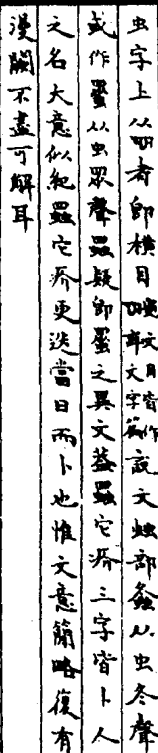 虫字上从罒者即橫目契文目皆作罒詳文字篇說文䖵部螽从虫冬聲
或作𧑄从虫眾聲疑即𧑄之異文蓋它疥三字皆卜人
之名大意似紀它疥更迭當日而卜也惟文意簡略復有
漫闕不盡可解耳